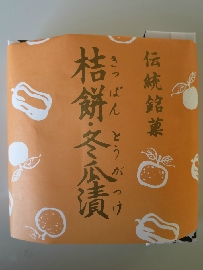 伝統銘菓
桔餅・冬瓜漬
きっぱん とうがつけ